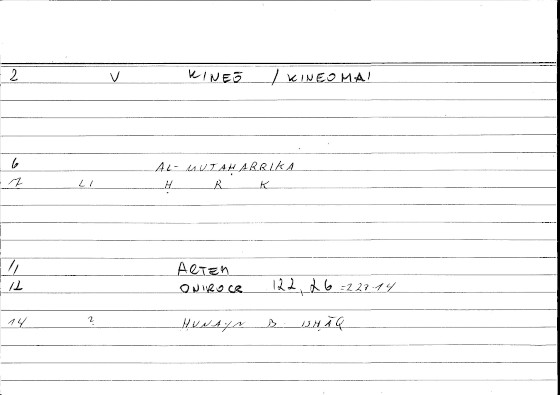 2 V KINEŌ / KINEOMAI
6 AL-MUTAḤARRIKA
7 LI Ḥ R K
11 ARTEM
12 ONIROCR 122, 26 =222-14
14 2 ḤUNAYN B. ISḤĀQ